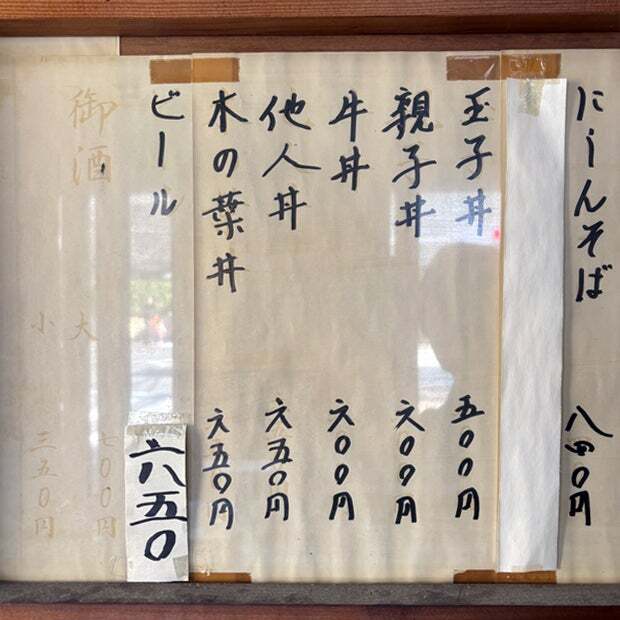 にしんそば 八四〇円
玉子丼 五〇〇円
親子丼 六〇〇円
牛丼 六〇〇円
他人丼 六五〇円
木の葉丼 六五〇円
ビール 六五〇
御酒 大 七〇〇円
小 三五〇円